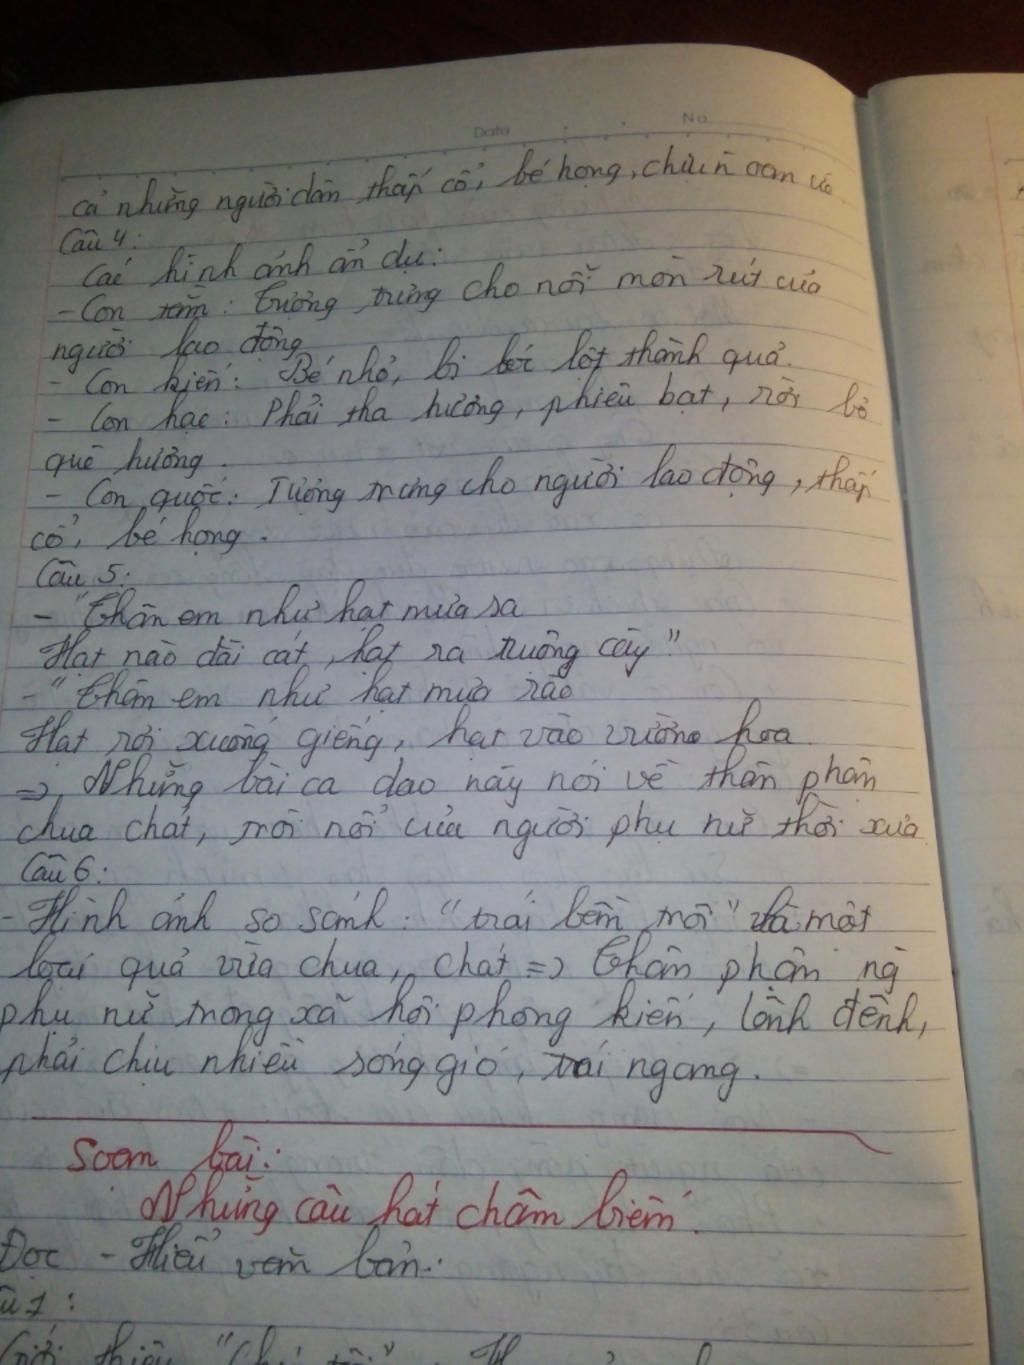 Date No
cả những người dân thấp cổ, bé họng, chịu oan ức
Câu 4:
Các hình ảnh ẩn dụ:
- Con tằm: Tượng trưng cho nỗi mòn rút của
người lao động
- Con kiến: Bé nhỏ, bị bóc lột thành quả.
- Con hạc: Phải tha hương, phiêu bạt, rời bỏ
quê hương.
- Con quốc: Tượng trưng cho người lao động, thấp
cổ, bé họng.
Câu 5:
- "Thân em như hạt mưa sa
Hạt nào đài cát, hạt ra ruộng cày"
- "Thân em như hạt mưa rào
Hạt rơi xuống giếng, hạt vào vườn hoa.
=> Những bài ca dao này nói về thân phận
chua chát, trôi nổi của người phụ nữ thời xưa.
Câu 6:
- Hình ảnh so sánh: "trái bần trôi" là một
loại quả vừa chua, chát => Thân phận ng
phụ nữ trong xã hội phong kiến, lênh đênh,
phải chịu nhiều sóng gió, trái ngang.
Soạn bài:
Những câu hát châm biếm.
Đọc - Hiểu văn bản:
1: